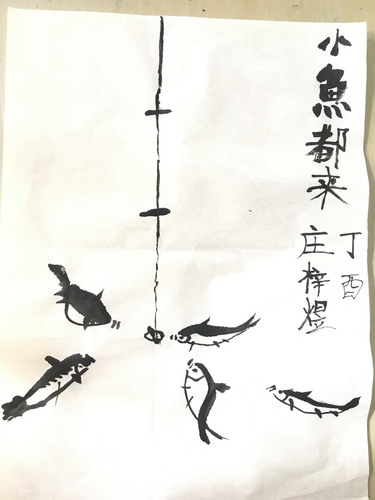 小魚都来
丁酉
庄梓煜